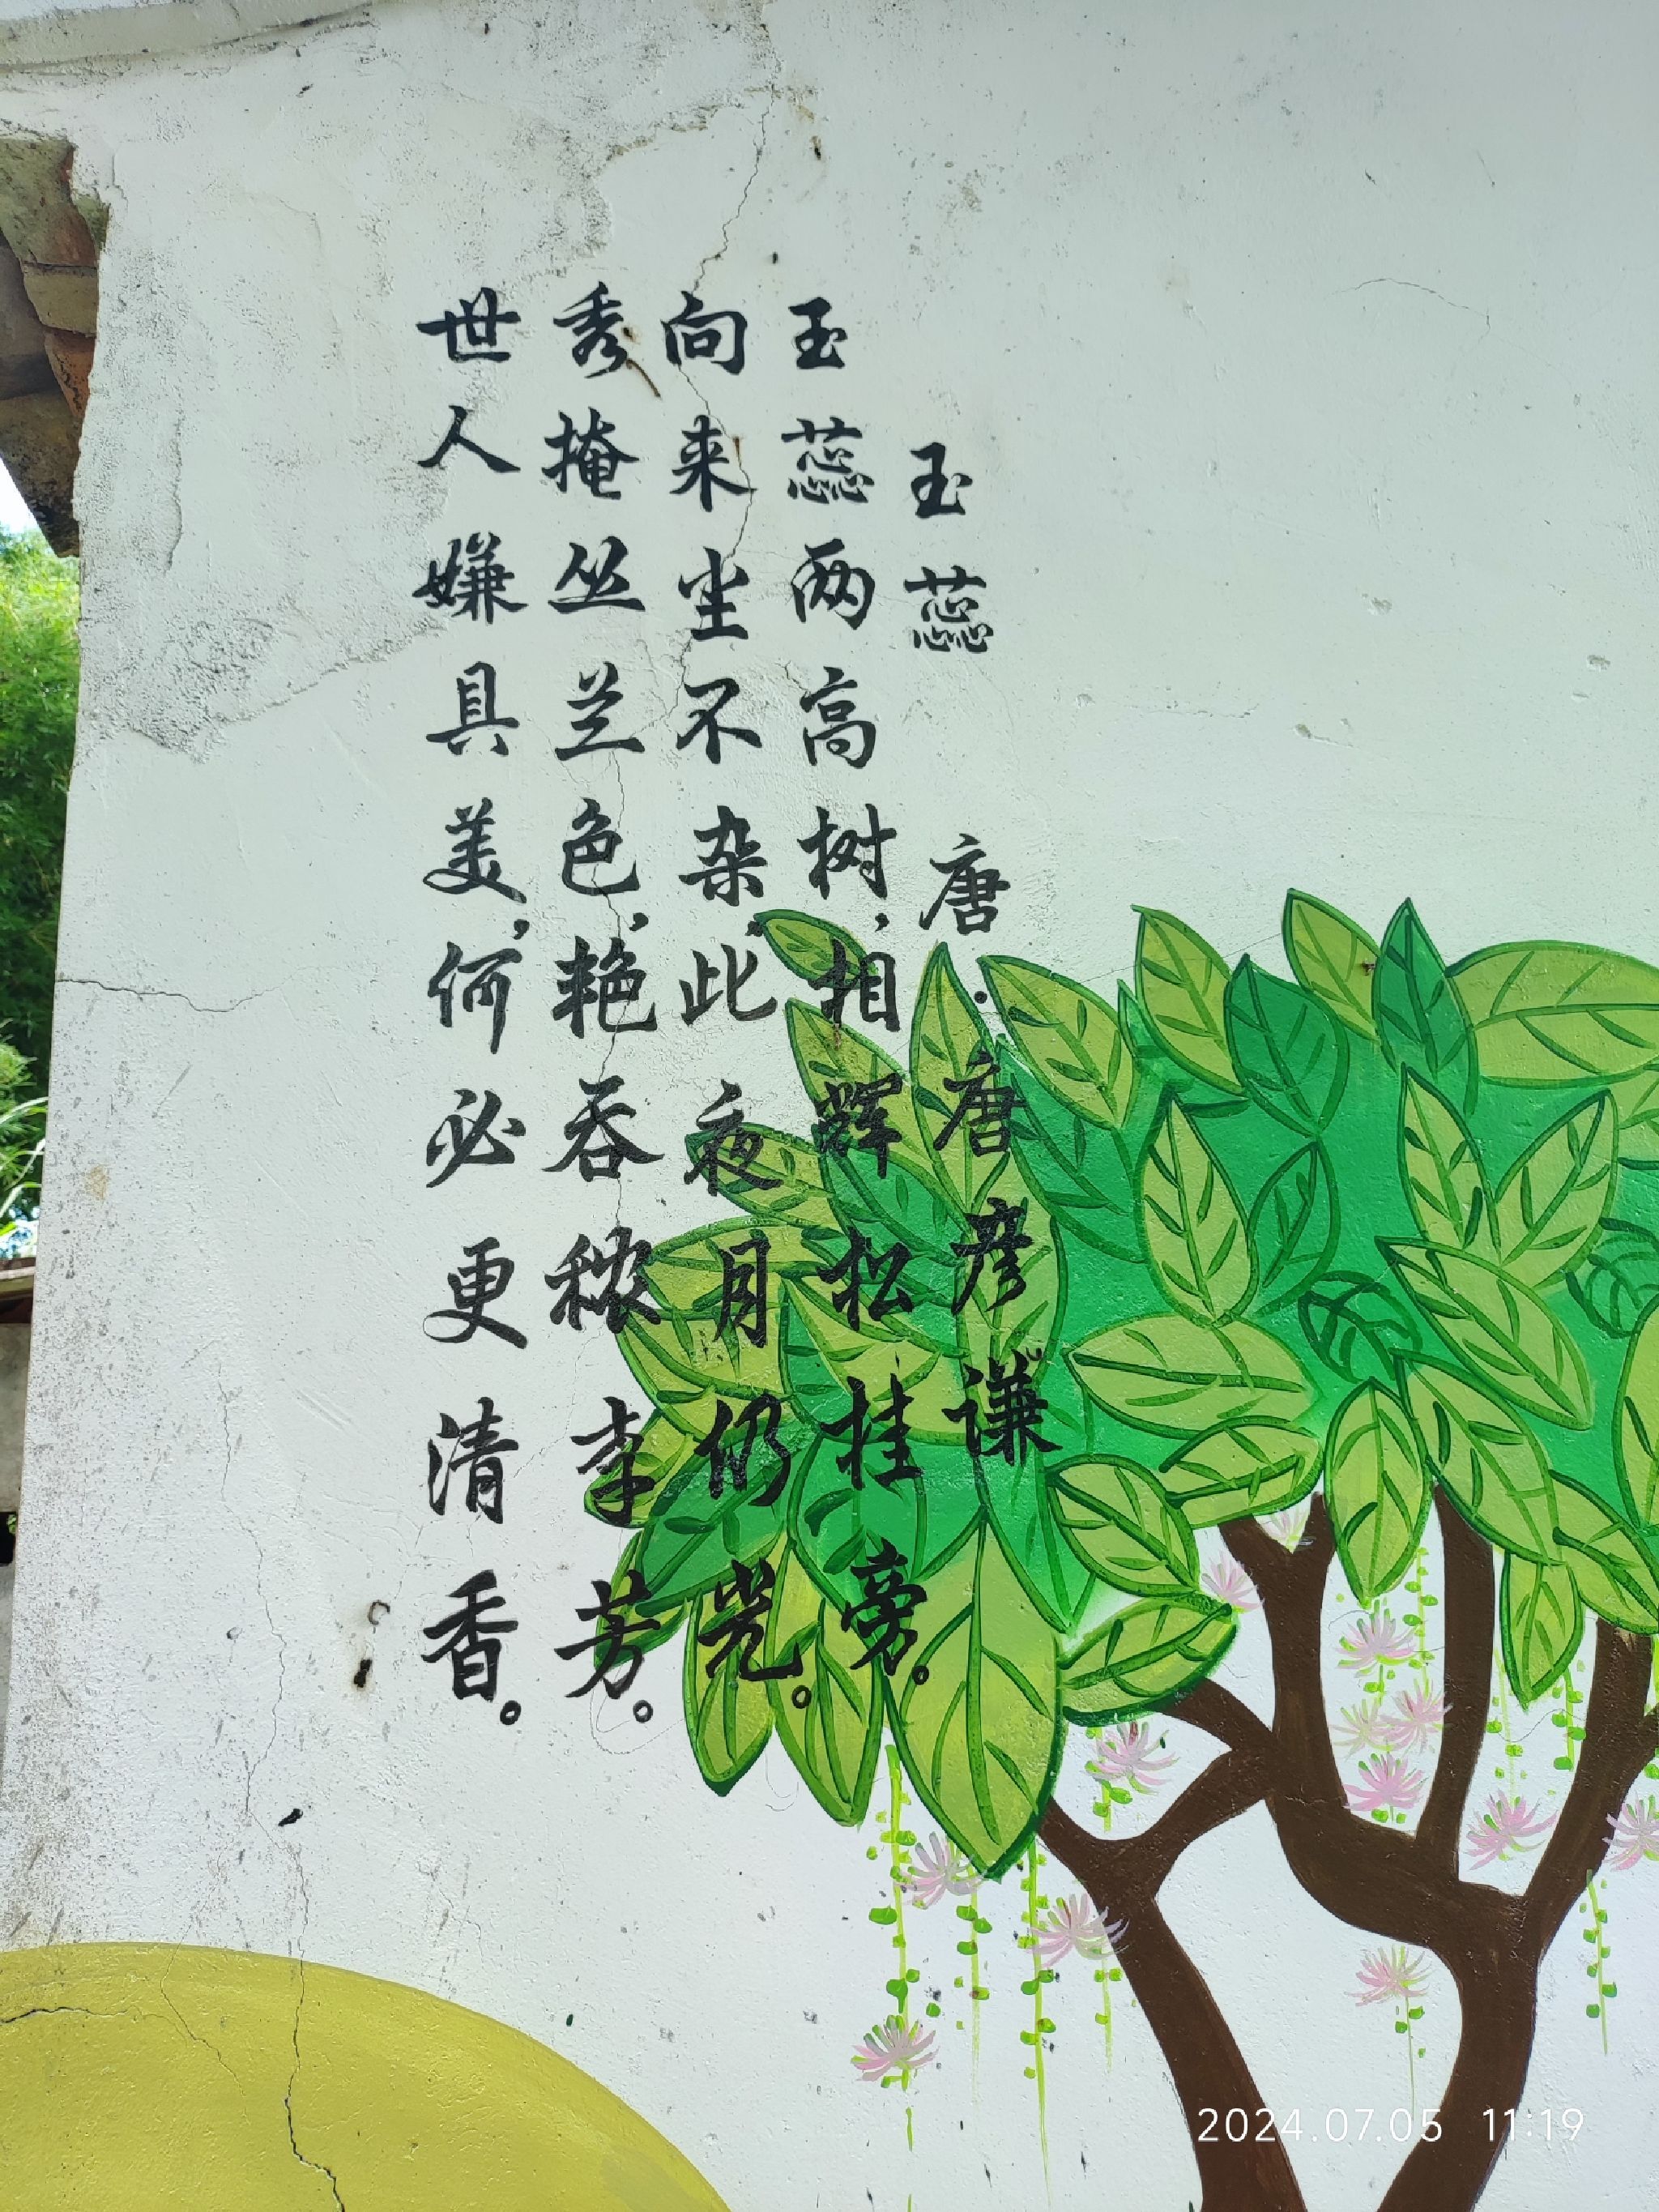 玉蕊 唐·唐彦谦
玉蕊两高树，相辉松桂旁。
向来尘不杂，此夜月仍光。
秀掩丛兰色，艳吞秾李芳。
世人嫌具美，何必更清香。
2024.07.05 11:19